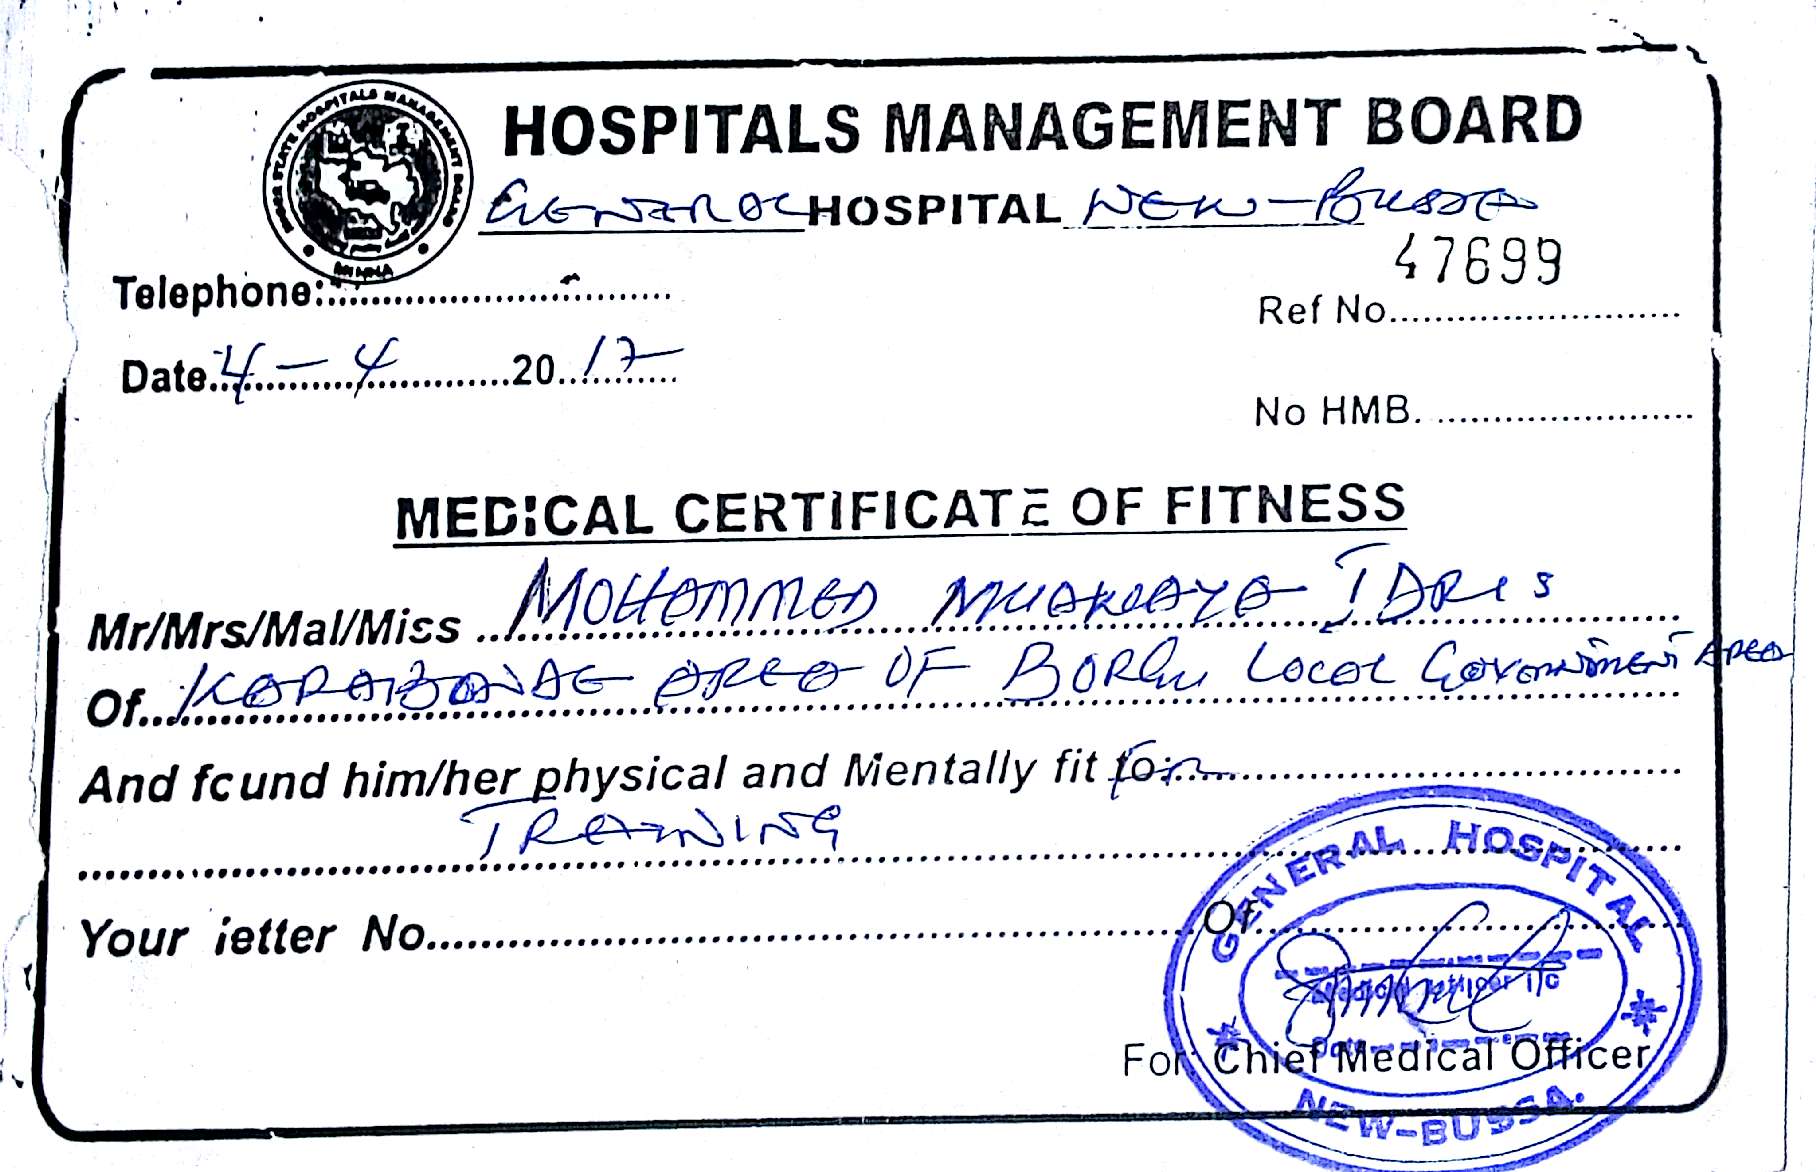 NIGER STATE HOSPITALS MANAGEMENT BOARD
MINNA
HOSPITALS MANAGEMENT BOARD
GENERAL HOSPITAL NEW-BUSSA
47699
Telephone:
Ref No
Date 4-4 2017
No HMB.
MEDICAL CERTIFICATE OF FITNESS
Mr/Mrs/Mal/Miss MOHAMMED MUAWAYA IDRIS
Of KARABONDE AREA OF BORGU LOCAL GOVERNMENT AREA
And found him/her physical and Mentally fit for
TRAINING
Your letter No. Of
GENERAL HOSPITAL
Medical Officer I/C
Date
For: Chief Medical Officer
NEW-BUSSA.